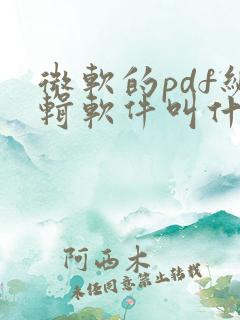 微軟的pdf編
輯軟件叫什
阿西木
未经同意禁止转载